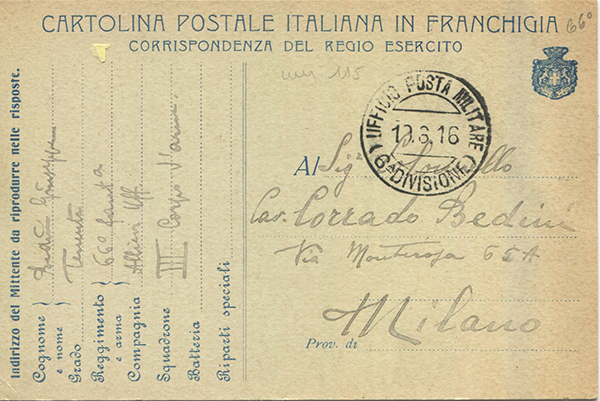 CARTOLINA POSTALE ITALIANA IN FRANCHIGIA
66°
CORRISPONDENZA DEL REGIO ESERCITO
115
UFFICIO POSTA MILITARE
12.6.16
(6ª DIVISIONE)
Al Sig.
Cav. Corrado Bedini
Via Monterosa 65A
Milano
Prov. di
Indirizzo del Mittente da riprodurre nelle risposte.
Cognome e nome } Giuseppe
Grado Tenente
Reggimento e arma } 66° fant.a
Compagnia Allievi Uff.
Squadrone III Corpo d'arm.
Batteria
Riparti speciali